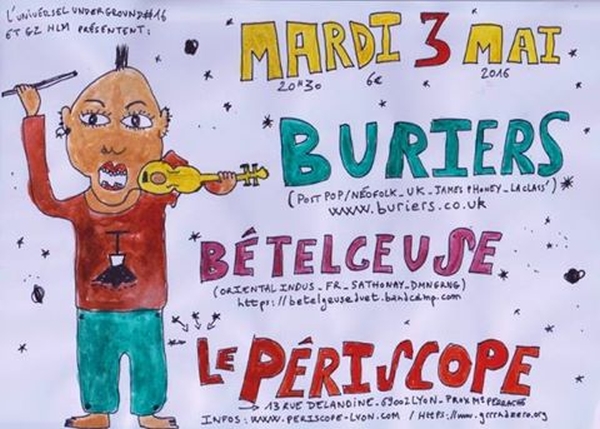 L'UNIVERSEL UNDERGROUND #16
ET GZ HLM PRÉSENTENT:
MARDI 3 MAI
20H30 6€ 2016
BURIERS
(POST POP/NÉOFOLK_UK_JAMES P HONEY_LA CLASS')
www.buriers.co.uk
BÉTELGEUSE
(ORIENTAL INDUS_FR_SATHONAY-DMNGRNG)
https://betelgeuseduet.bandcamp.com
LE PÉRISCOPE
13 RUE DELANDINE_69002 LYON_PROX Mº PERRACHE
INFOS: WWW.PERISCOPE-LYON.COM / https://www.grrrndzero.org